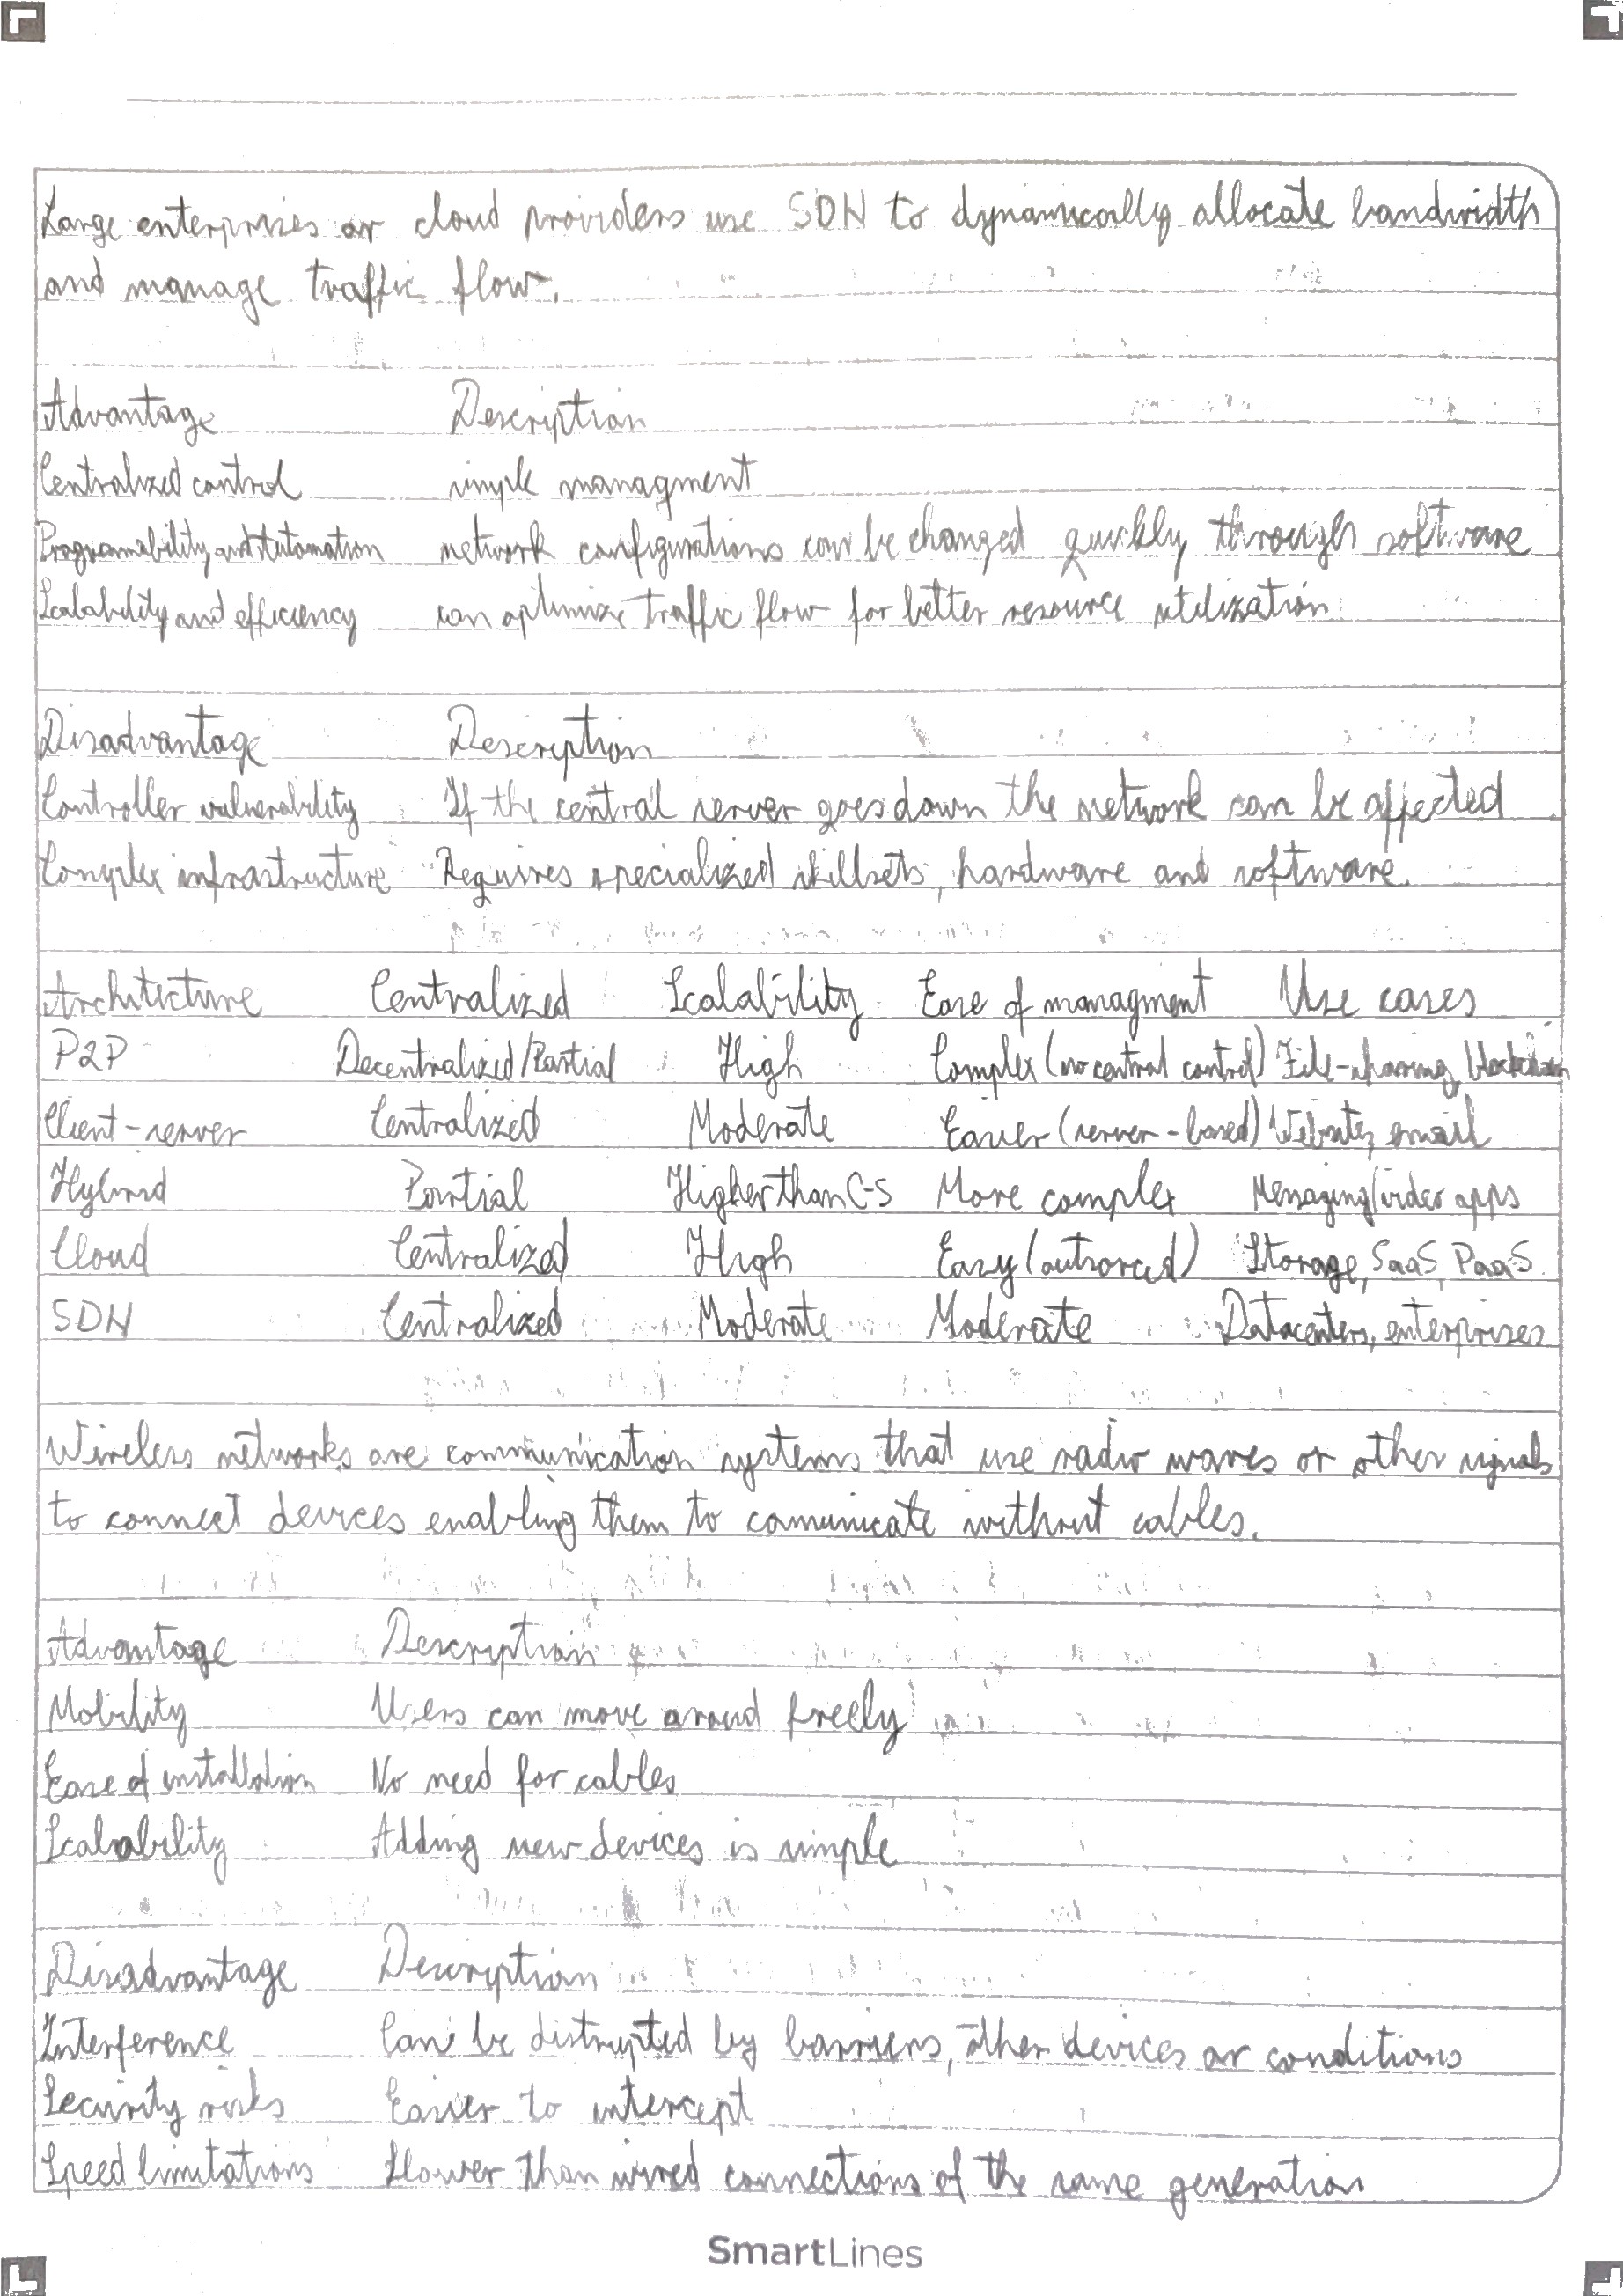 Large enterprises or cloud providers use SDN to dynamically allocate bandwidth
and manage traffic flow.
Advantage Description
Centralized control simple managment
Programmability and Automation network configurations can be changed quickly through software
Scalability and efficiency can optimize traffic flow for better resource utilization
Disadvantage Description
Controller vulnerability If the central server goes down the network can be affected
Complex infrastructure Requires specialized skillsets, hardware and software.
Architecture Centralized Scalability Ease of managment Use cases
P2P Decentralized/Partial High Complex (no central control) File-sharing, blockchain
Client-server Centralized Moderate Easier (server-based) Websites, email
Hybrid Partial Higher than C-S More complex Messaging/video apps
Cloud Centralized High Easy (outsorced) Storage, SaaS, PaaS.
SDN Centralized Moderate Moderate Datacenters, enterprises
Wireless networks are communication systems that use radio waves or other signals
to connect devices enabling them to comunicate without cables.
Advantage Description
Mobility Users can move aroud freely
Ease of installation No need for cables
Scalability Adding new devices is simple
Disadvantage Description
Interference Can be distrupted by barriers, other devices or conditions
Security risks Easier to intercept
Speed limitations Slower than wired connections of the same generation
SmartLines